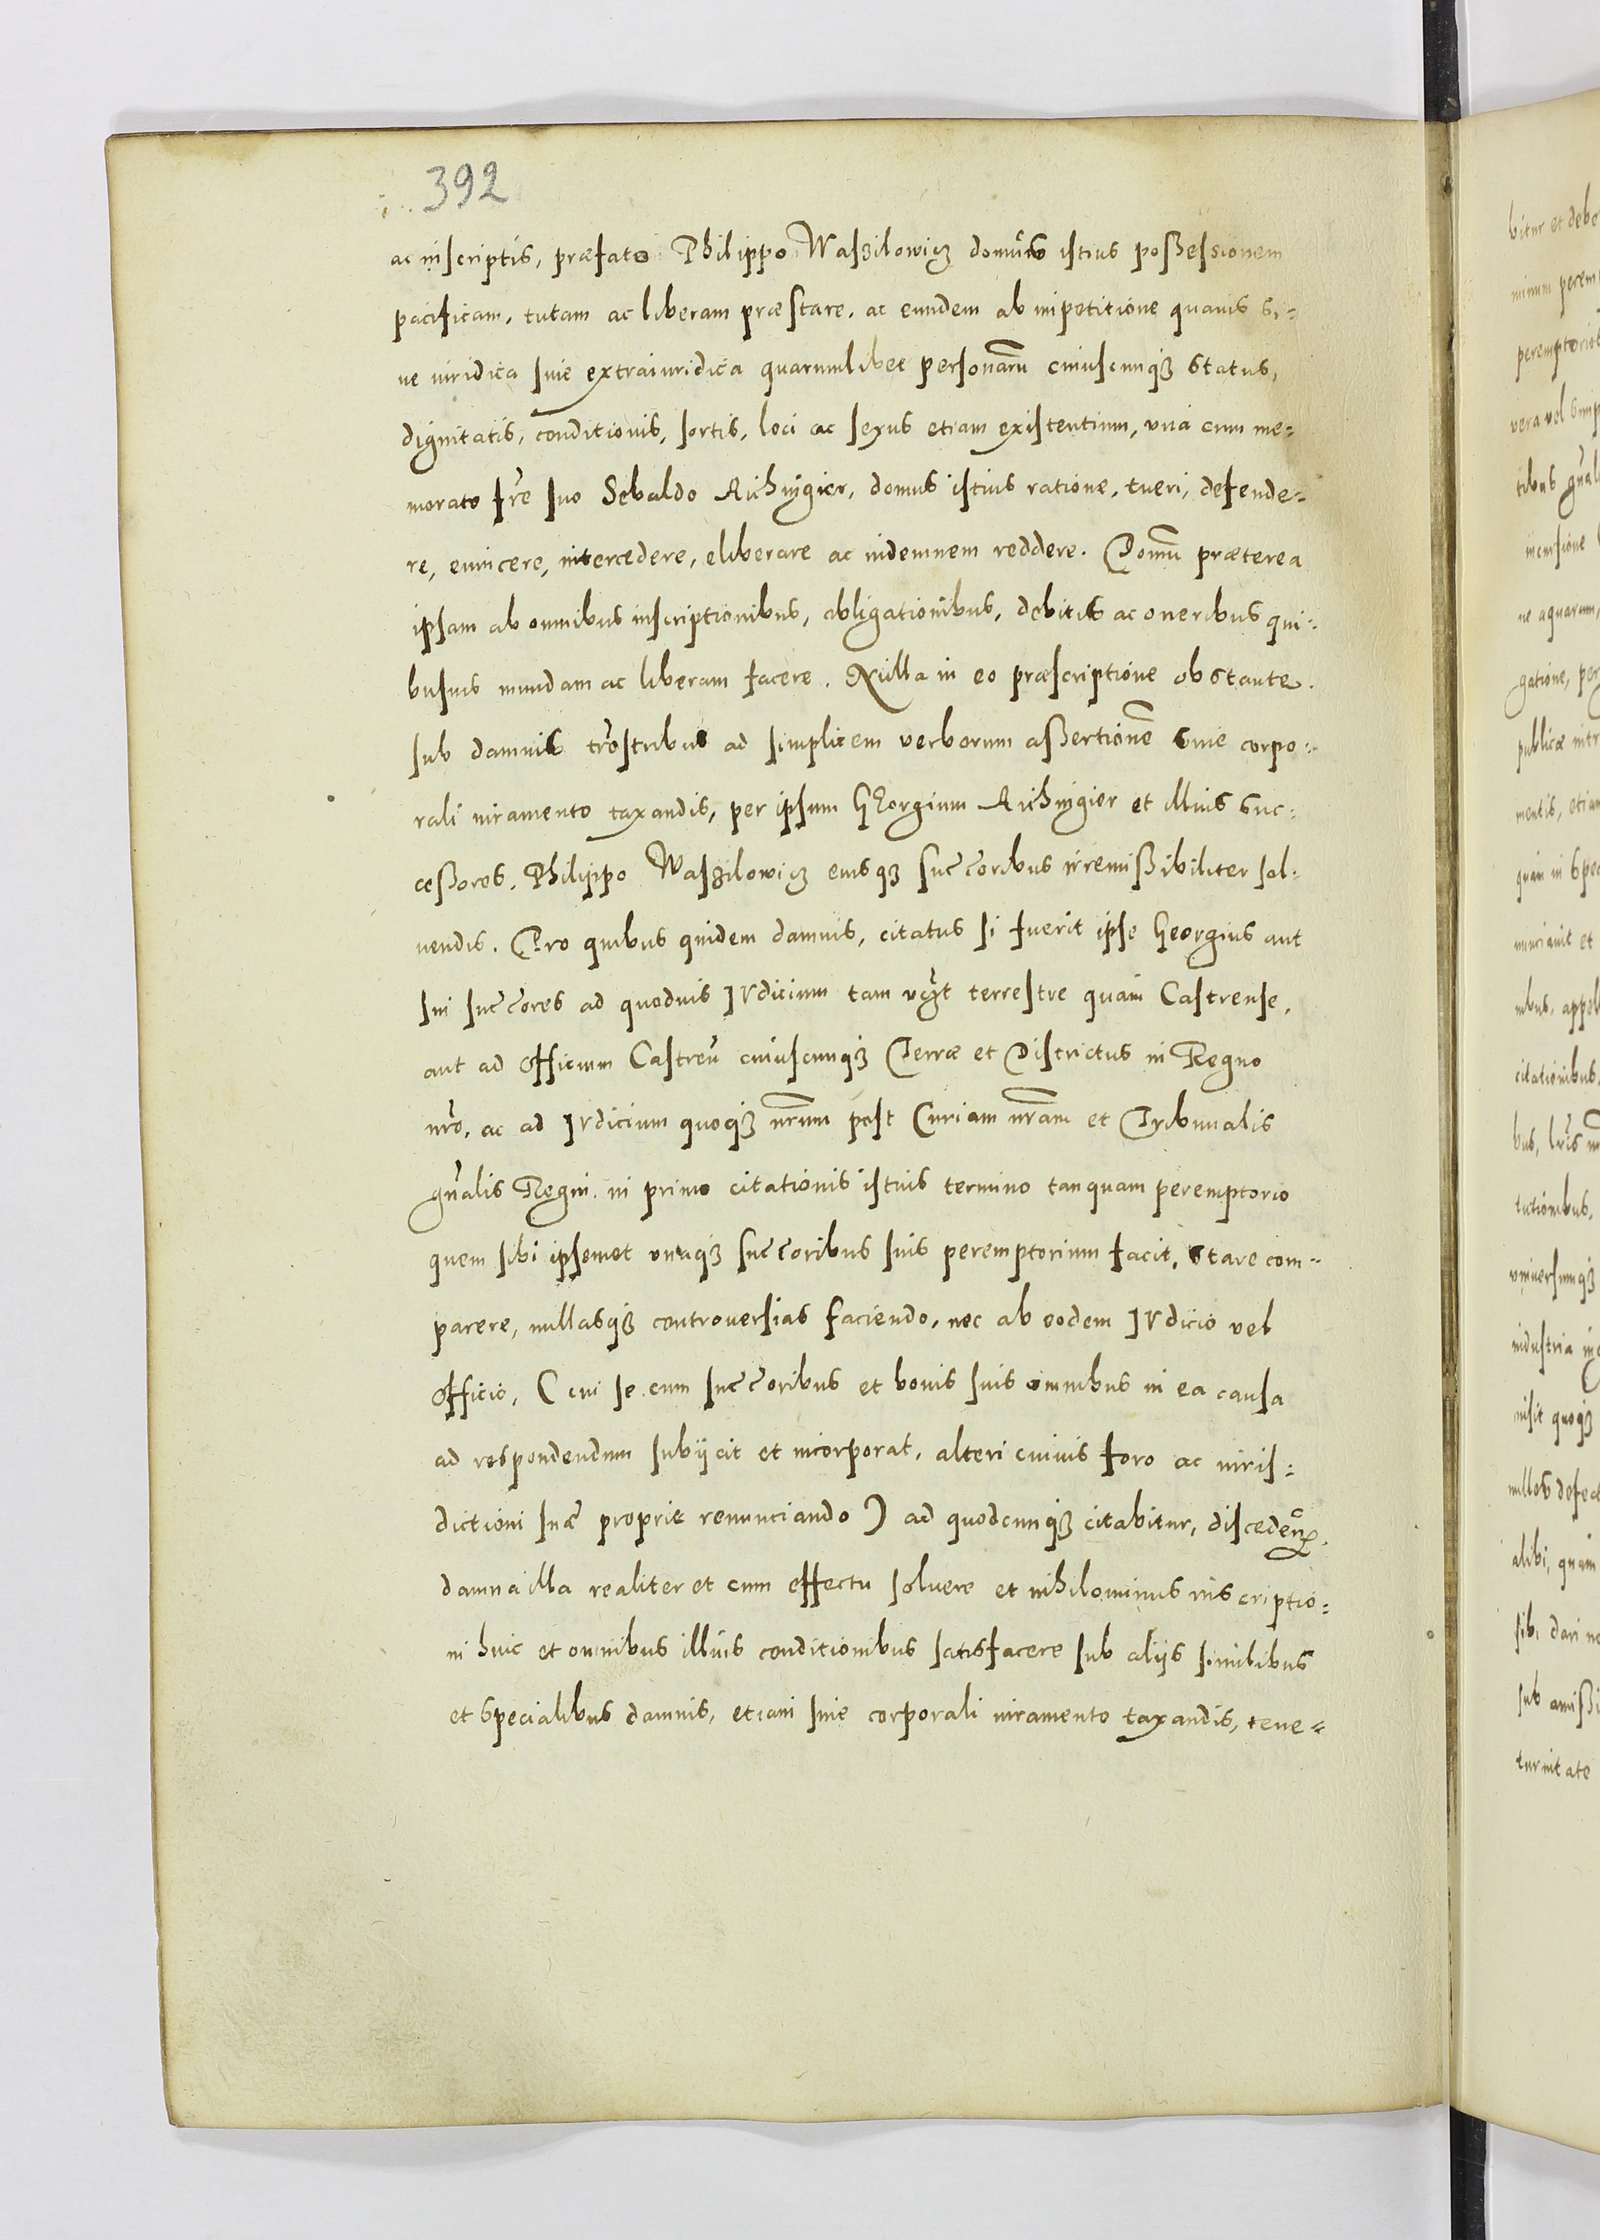 392
ac inscriptis, præfato Philippo Waszilowicz domus istius possessionem
pacificam, tutam ac liberam præstare, ac eundem ab inpetitione quavis si-
ue iuridica siue extraiuridica quarumlibet personaru cuiuscunq3 status,
dignitatis, conditionis, sortis, loci ac sexus etiam existentium, vna cum me-
morato fre suo Sebaldo Aichingier, domus istius ratione, tueri, defende-
re, euincere, intercedere, eliberare ac indemnem reddere. Domu præterea
ipsam ab omnibus inscriptionibus, obligationibus, debitis ac oneribus qui-
busuis mundam ac liberam facere. Nulla in eo præscriptione obstante.
sub damnis trostribus ad simplicem verborum assertione siue corpo-
rali iuramento taxandis, per ipsum Georgium Aichingier et illius suc-
cessores, Philippo Waszilowicz eiusq3 succoribus irremissibiliter sol-
uendis. Pro quibus quidem damnis, citatus si fuerit ipse Georgius aut
sui succores ad quoduis Iudicium tam terrestre quam Castrense,
aut ad officium Castren cuiuscunq3 Terræ et Districtus in Regno
nro, ac ad Iudicium quoq3 nrum post Curiam nram et Tribunalis
gnalis Regni, in primo citationis istius termino tanquam peremptorio
quem sibi ipsemet vnaq3 succoribus suis peremptorium facit, stare com-
parere, nullasq3 controuersias faciendo, nec ab eodem Iudicio vel
officio, (cui se cum succoribus et bonis suis omnibus in ea causa
ad respondendum subijcit et incorporat, alteri cuiuis foro ac iuris-
dictioni suæ propriæ renunciando) ad quodcunq3 citabitur, disceden
damna illa realiter et cum effectu soluere et nihilominus inscriptio-
ni huic et omnibus illius conditionibus satisfacere sub alijs similibus
et specialibus damnis, etiam siue corporali iuramento taxandis, tene-
bitur et debe
minum perem
peremptorio
vera vel simp
tibus gnal
incursione
ne aquarum,
gatione, per
publicæ intr
mentis, etiam
quam in spec
nunciauit et
nibus, appel
citationibus,
bus, lris
tutionibus,
vniuersumq3
industria
misit quoq3
nullos defect
alibi, quam
sibi dari
sub amissi
turnitate